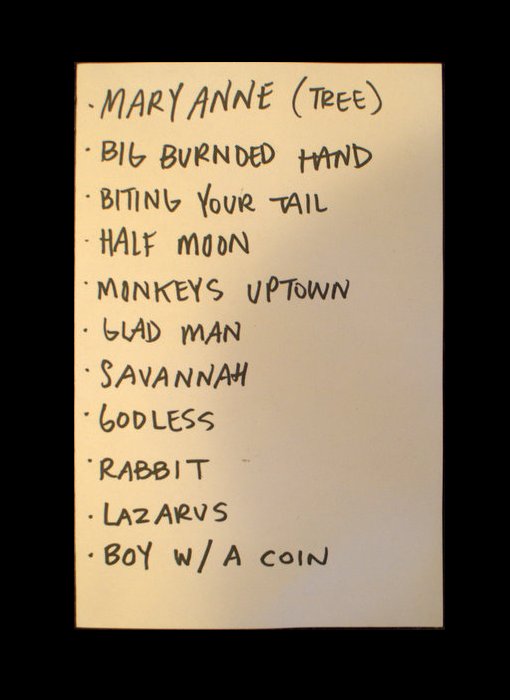 · MARY ANNE (TREE)
· BIG BURNDED HAND
· BITING YOUR TAIL
· HALF MOON
· MONKEYS UPTOWN
· GLAD MAN
· SAVANNAH
· GODLESS
· RABBIT
· LAZARUS
· BOY W/ A COIN